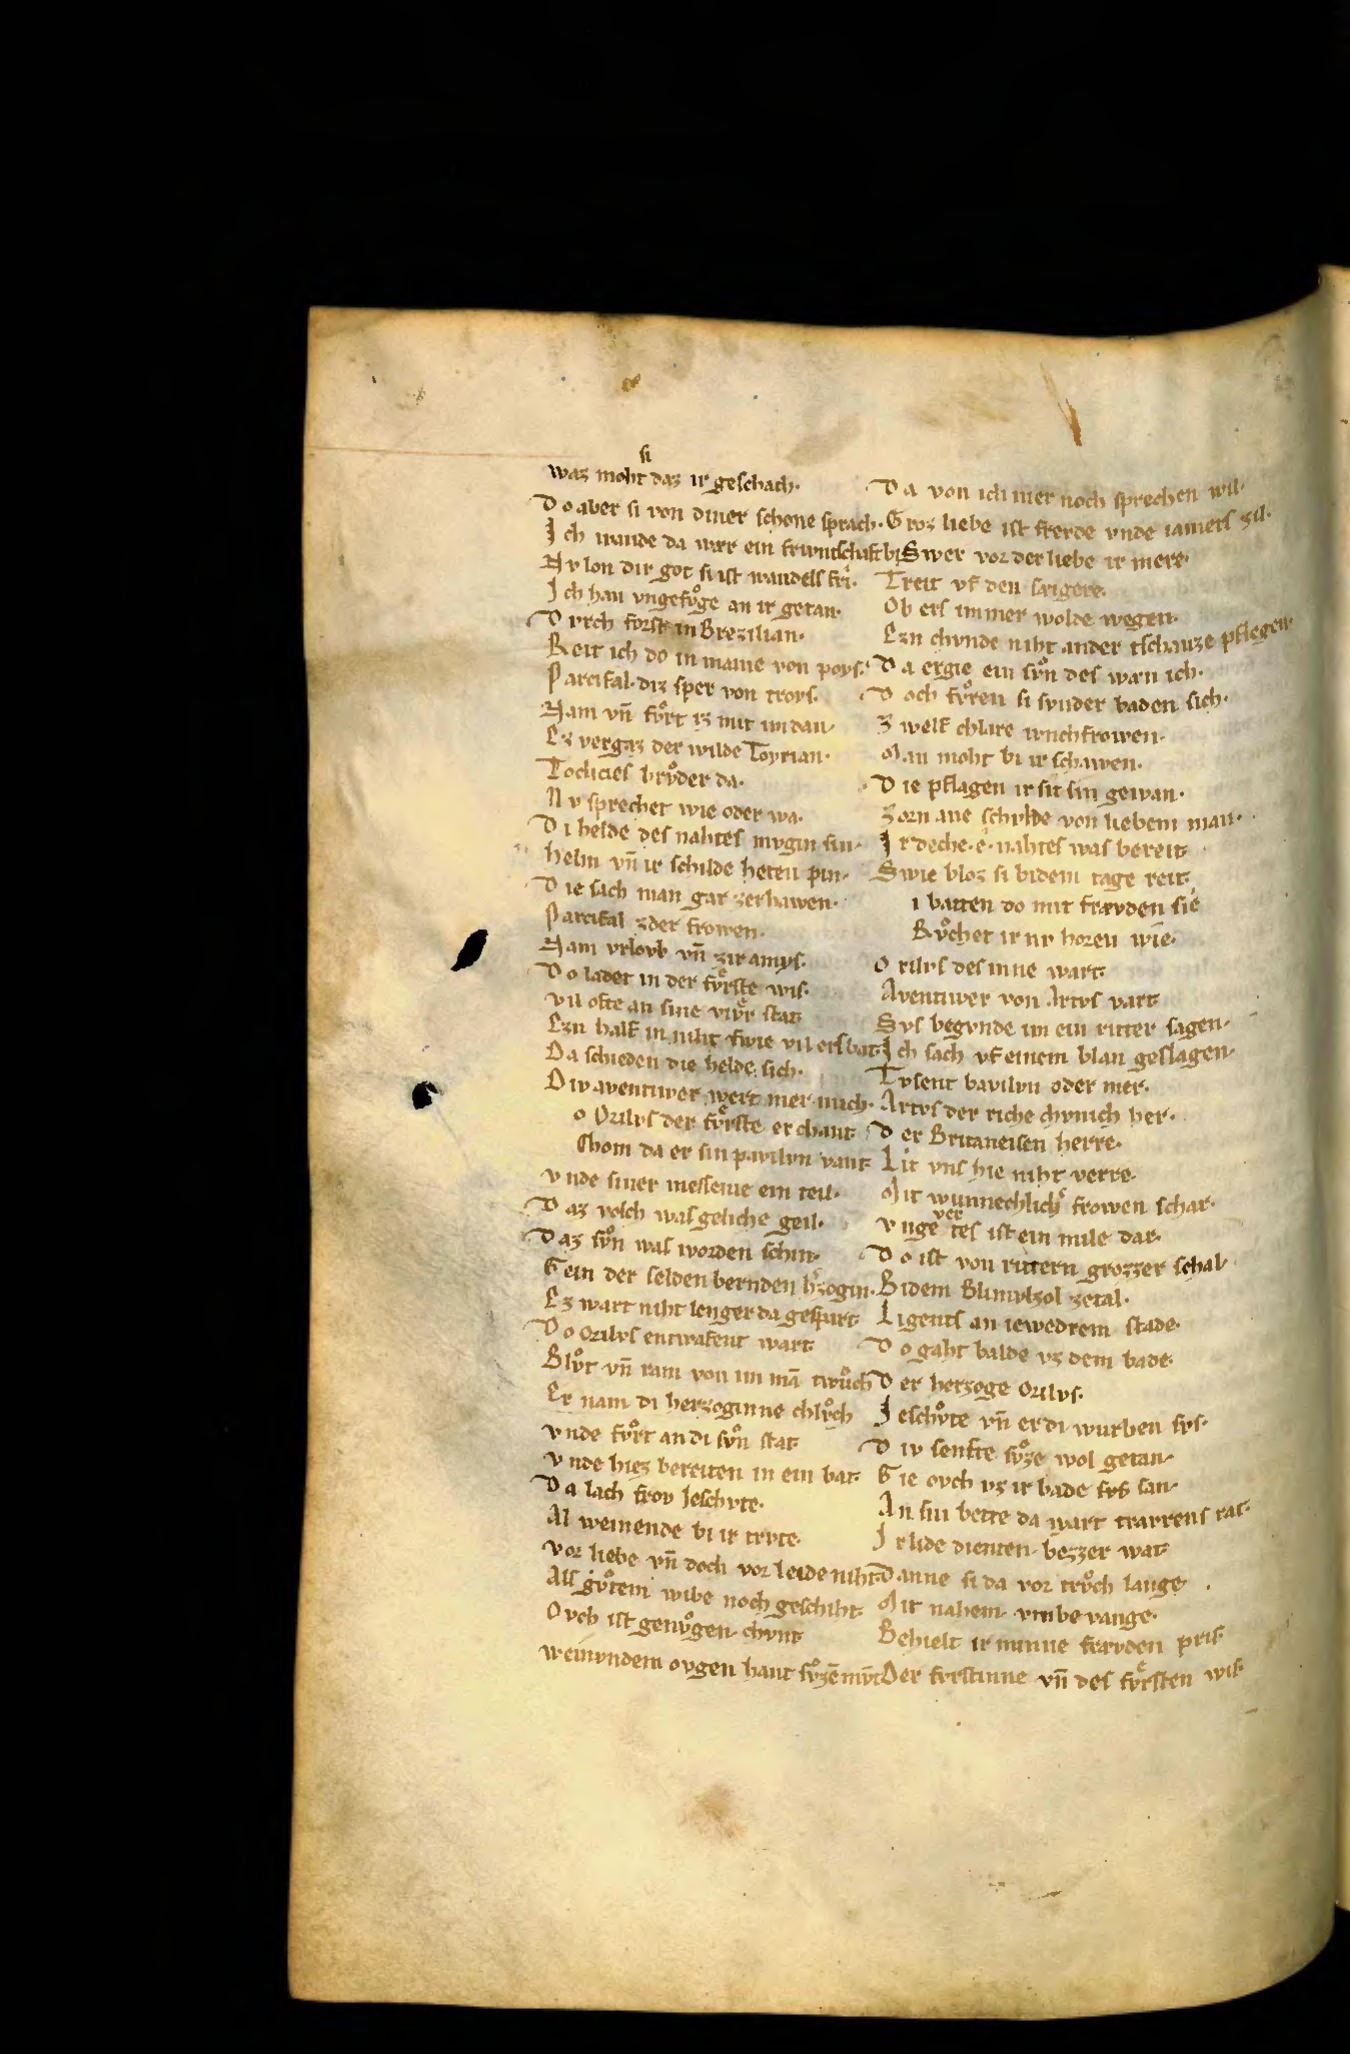 si
waz moht daz ir geschach·
Do aber si von diner schone sprach·
Ich wande da wær ein friwntschaft bi
Nv lon dir got si ist wandels fri·
Ich han vngefvͦge an ir getan·
Dvrch forst in Brezilian·
Reit ich do in maine von poys·
Parcifal diz sper von troys·
Nam vn̄ fvͦrt iz mit im dan·
Ez vergaz der wilde Toyrian·
Toclicies brvͦder da·
Nv sprechet wie oder wa·
Di helde des nahtes mvgin sin·
helm vn̄ ir schilde heten pin·
Die sach man gar zerhawen·
Parcifal zder frowen·
Nam vrlovb vn̄ zir amys·
Do ladet in der fvͤrste wis·
vil ofte an sine vivͤr stat
Ezn half in niht swie vil ers bat·
Da schieden die helde sich·
Div aventiwer wert mer mich·
o Orilvs der fvͤrste erchant
Chom da er sin pavilvn vant
vnde siner messenie ein teil·
Daz volch was geliche geil·
Daz svͦn was worden schin·
Gein der selden bernden h̾zogin·
Ez wart niht lenger da gespart
Do Orilvs entwafent wart
Blvͦt vn̄ ram von im mā twuͦch
Er nam di herzoginne chlvͦch
vnde fvͦrt an di svͦn stat
vnde hiez bereiten in ein bat·
Da lach frov Jeschvte·
Al weinende bi ir trvte·
vor liebe vn̄ doch vor leide niht
Als gvͦtem wibe noch geschiht·
Ovch ist genvͦgen chvnt
weinvndem ovgen hant svͦzē mv̄t
Da von ich mer noch sprechen wil·
Groz liebe ist frevde vnde iamers zil·
Swer vor der liebe ir mere·
Treit vf den sæigere·
Ob ers immer wolde wegen·
Ezn chvnde niht ander tschanze pflegen·
Da ergie ein svͦn des wæn ich·
Doch fvͦren si svnder baden sich·
Zwelf chlare ivnchfrowen·
Man moht bi ir schawen·
Die pflagen ir sit sin gewan·
Zorn ane schvlde von liebem man·
Ir deche· e· nahtes was bereit
Swie bloz si bi dem tage reit
i batten do mit frævden sie
Rvͦchet ir nv horen wie·
Orilvs des inne wart
Aventiwer von Artvs vart
Svs begvnde im ein ritter sagen·
Ich sach vf einem blan geslagen·
Tvsent pavilvn oder mer·
Artvs der riche chvnich her·
Der Britaneisen herre·
Lit vns hie niht verre·
Mit wunnechlich̾ frowen schar·
vnge ver tes ist ein mile dar·
Do ist von rittern grozzer schal·
Bidem Blimvlzol zetal·
Ligents an iewedrem stade·
Do gaht balde vz dem bade·
Der herzoge Orilvs·
Jeschvͦte vn̄ er di wurben svs·
Div senfte svͦze wol getan·
Gie ovch vz ir bade svs san·
An sin bette da wart trarrens rat·
Ir lide dienten bezzer wat
Danne si da vor trvͦch lange·
Mit nahem vmbe vange·
Behielt ir minne frævden pris·
Der fvrstinne vn̄ des fvͤrsten wis·